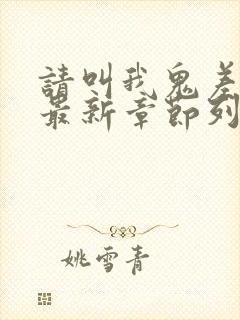 請叫我鬼差
最新章節列
姚雪青